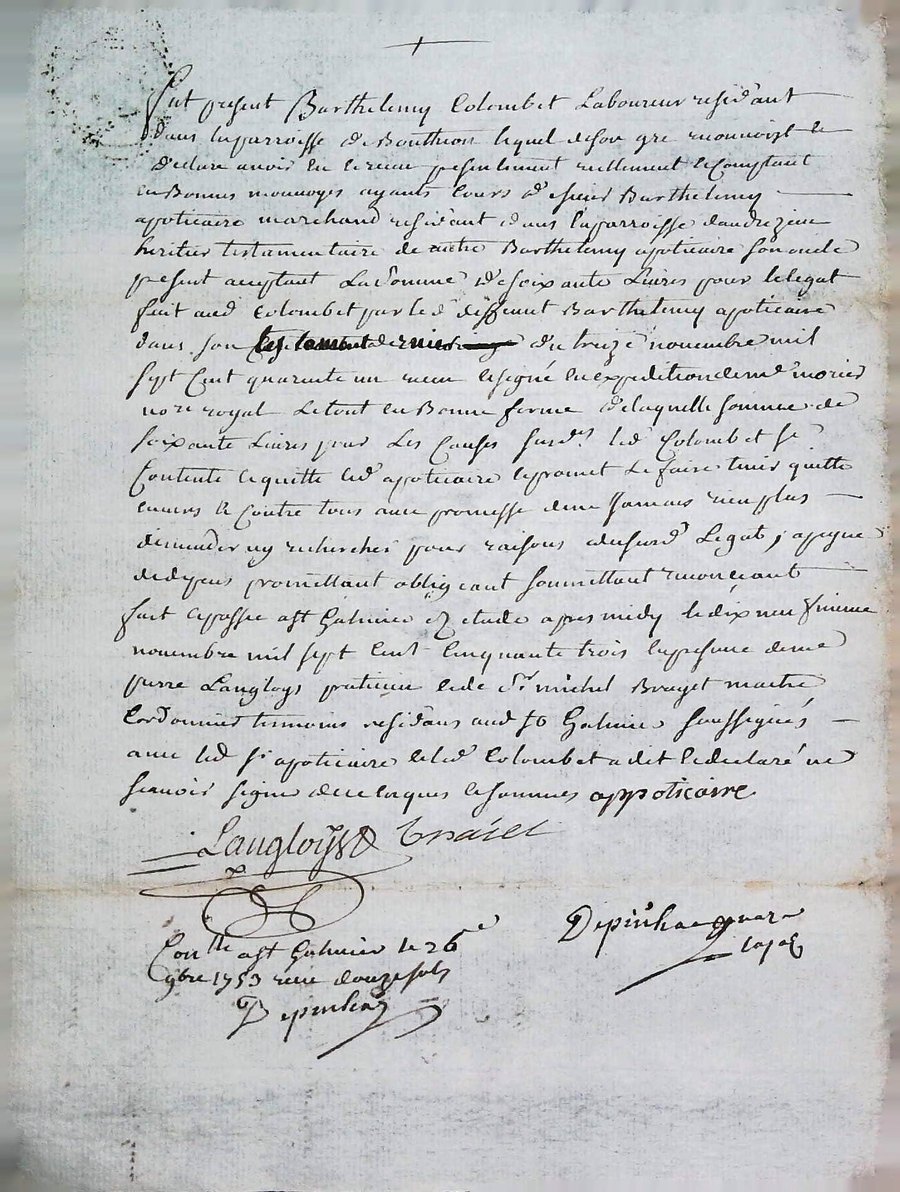 fut present Barthelemy Colombet Laboureur residant
dans la parroisse de Bouthion lequel de son gre reconnoist et
declare avoir eu et receu presentement reellement et Comptant
en Bonnes monnoyes ayants Cours de sieur Barthelemy
apoticaire marchand residant dans la parroisse dandrezieu
heritier testamentaire de autre Barthelemy apoticaire son oncle
present acceptant La somme de soixante Livres pour le legat
fait aud Colombet par led deffunt Barthelemy apoticaire
dans son testament du treize novembre mil
sept Cent quarente un receu et signé en expedition de me morier
nore royal Le tout en Bonne forme de laquelle somme de
soixante Livres pour Les Causes susd. led Colombet se
Contente et quitte led apoticaire et promet Le faire tenir quitte
envers et Contre tous avec promesse de ne Jamais rien plus
demander ny rechercher pour raisons dususd Legat, a peyne
de depens promettant obligeant soumettant renonceant
fait et passé a st Galmier ez etude apres midy le dix neufvieme
novembre mil sept Cent Cinquante trois en presence de me
pierre Langloys praticien et de sr michel Brayet maitre
Cordonnier temoins residans aud st Galmier soussignés
avec led sr apoticaire et led Colombet a dit et declaré ne
scavoir signer de ce enquis et sommes appoticaire
Langloys
Conlle a st Galmier le 26e
9bre 1753 receu douze sols